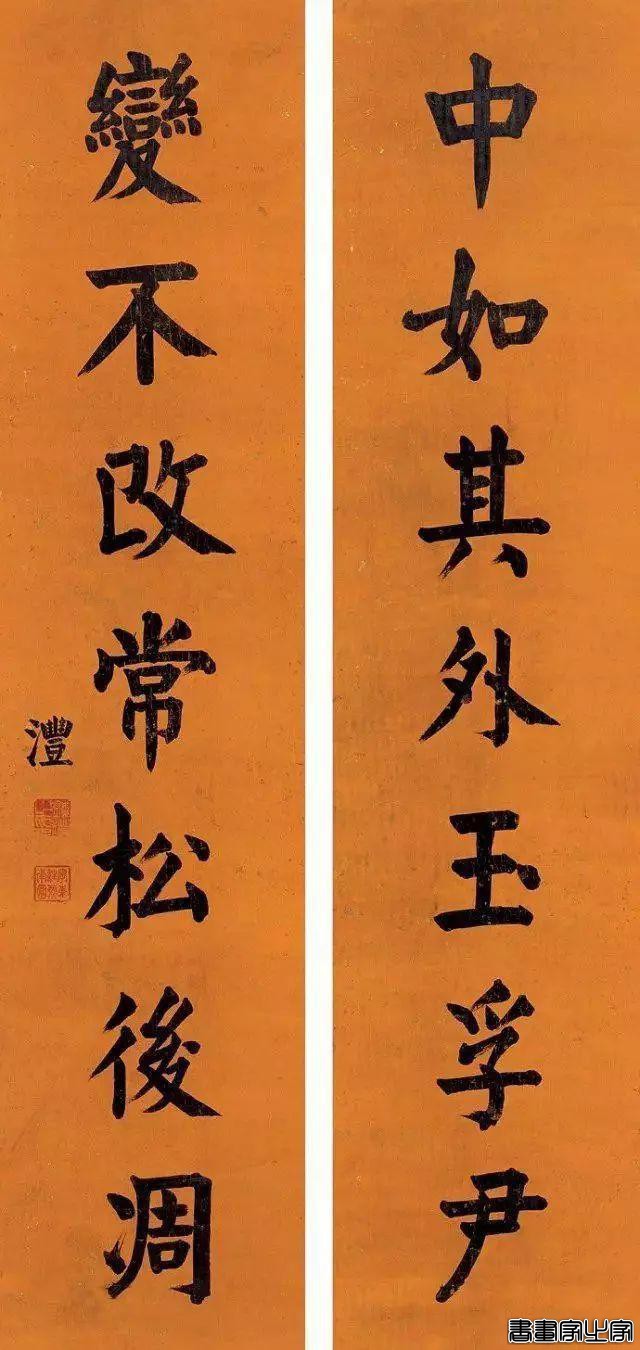 中如其外玉孚尹
變不改常松後凋
灃
書畫家之家